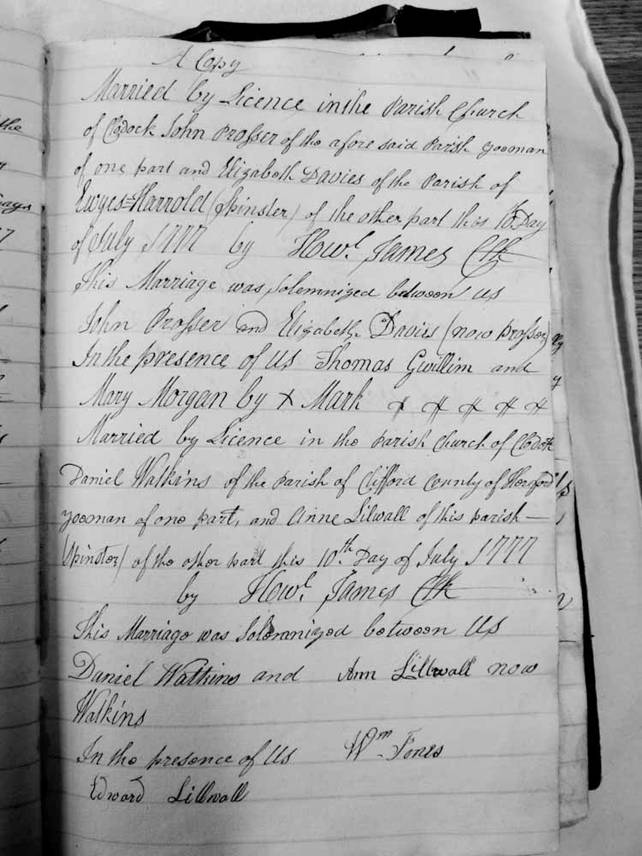 A Copy
Married by Licence in the Parish Church
of Clodock John Prosser of the afore said Parish yeoman
of one part and Elizabeth Davies of the Parish of
Ewyes=Harrold (Spinster) of the other part this 10 Day
of July 1777 by How.l James Clk
This Marriage was solemnized between us
John Prosser and Elizabeth Davies (now Prosser)
In the presence of us Thomas Gwillim and
Mary Morgan by X Mark
Married by Licence in the Parish Church of Clodock
Daniel Watkins of the Parish of Clifford County of Hereford
yeoman of one part, and Anne Lilwall of this parish
(Spinster) of the other part this 10.th Day of July 1777
by How.l James Clk
This Marriage was Solemnized between us
Daniel Watkins and Ann Lillwall now
Watkins
In the presence of Us Wm. Jones
Edward Lillwall
the